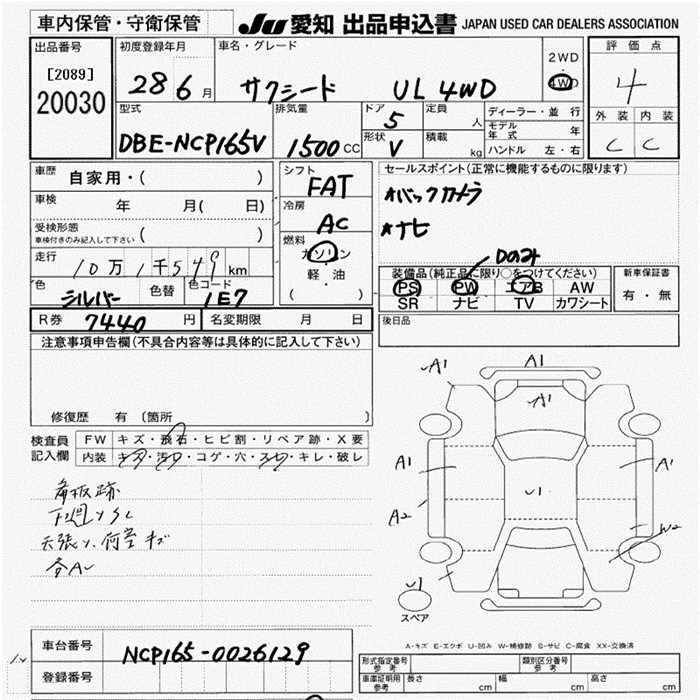 車内保管・守衛保管 JU 愛知 出品申込書 JAPAN USED CAR DEALERS ASSOCIATION
出品番号 初度登録年月 車名・グレード 2WD 評価点
[2089] 28 6月 サクシード UL 4WD 4WD 4
20030 型式 排気量 ドア 5 定員 人 ディーラー・並行 外装 内装
DBE-NCP165V 1500cc 形状 V 積載 kg モデル年式 年 C C
ハンドル 左・右
車歴 自家用・( ) シフト FAT セールスポイント(正常に機能するものに限ります)
車検 年 月( 日) 冷房 AC *バックカメラ
受検形態 ( ) *ナビ
車検付きのみ記入して下さい
走行 10万1千549km 燃料 ガソリン Dのみ
色 シルバー 色替 色コード 1E7 軽・油 ( ) 装備品(純正品に限り○をつけてください) 新車保証書
PS PW エアB AW 有・無
SR ナビ TV カワシート
R券 7440円 名変期限 月 日 後日品
注意事項申告欄(不具合内容等は具体的に記入して下さい)
修復歴 有 〔箇所
検査員 FW キズ・飛石・ヒビ割・リペア跡・X要
記入欄 内装 キズ・汚れ・コゲ・穴・スレ・キレ・破レ
看板跡
下廻りサビ
天張り、荷室キズ
A1 A1
A1
A1 U1 A1
A2 W2
U1
スペア
A-キズ E-エクボ U-凹み W-補修跡 S-サビ C-腐食 XX-交換済
車台番号 NCP165-0026129
登録番号
形式指定番号 参考 類別区分番号 参考
車庫証明用 参考 長さ cm 幅 cm 高さ cm